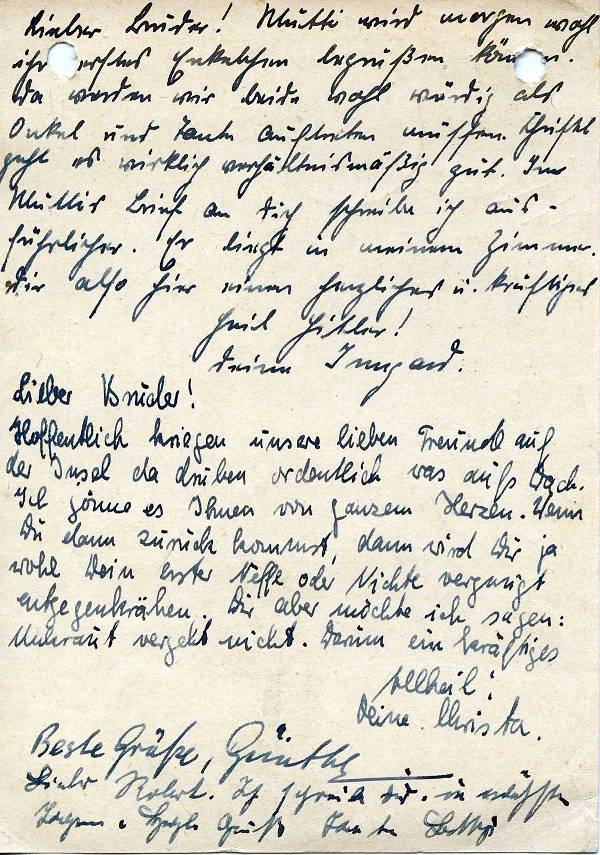 Lieber Bruder! Mutti wird morgen wohl
ihr erstes Enkelchen begrüßen können.
Da werden wir beide wohl würdig als
Onkel und Tante auftreten müssen.
geht es wirklich verhältnismäßig gut. Im
Muttis Brief an Dich schreibe ich aus-
führlicher. Er liegt in meinem Zimmer.
Dir also hier einen herzliches u. kräftiges
Heil Hitler!
Deine Irmgard.
Lieber Bruder!
Hoffentlich kriegen unsere lieben Freunde auf
der Insel da drüben ordentlich was aufs Dach.
Ich gönne es Ihnen von ganzem Herzen. Wenn
Du dann zurück kommst, dann wird Dir ja
wohl Dein erster Neffe oder Nichte vergnügt
entgegenkrähen. Dir aber möchte ich sagen:
Unkraut vergeht nicht. Darum ein kräftiges
Allheil!
Deine Christa.
Beste Grüße, Günther
Lieber. Ich schreib Dir. in nächsten
Tagen. Grüße Tante